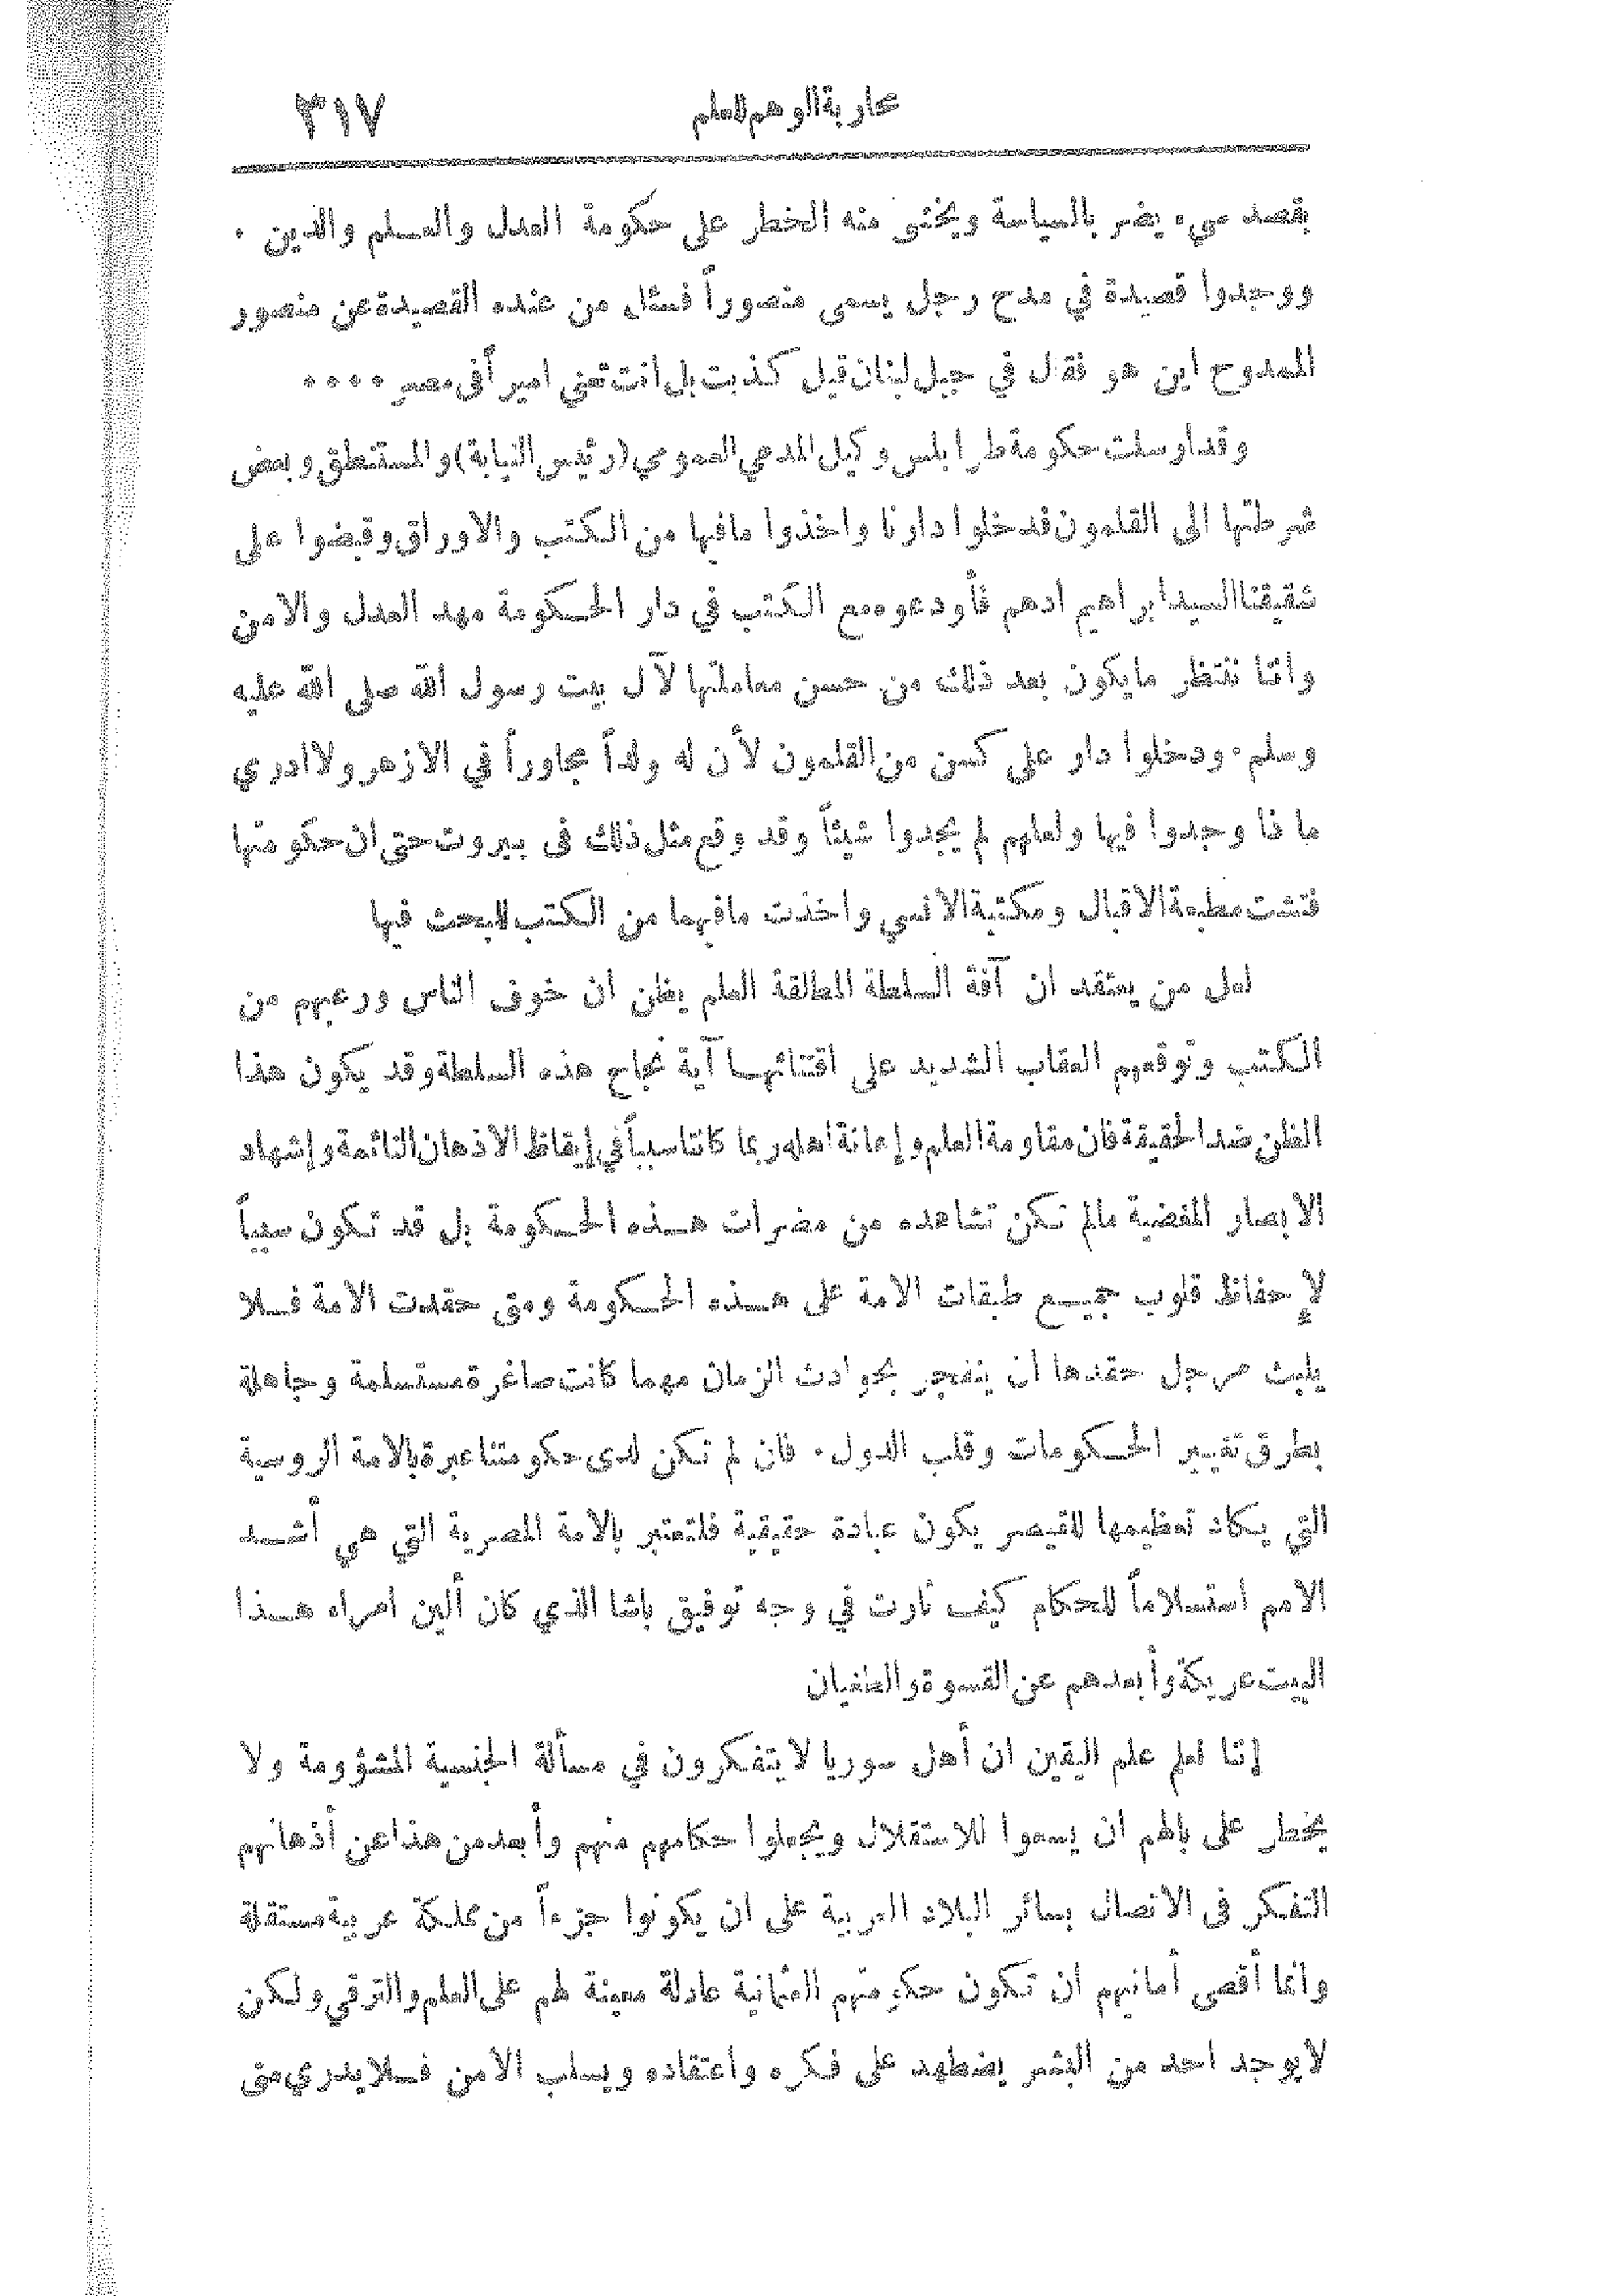 محاربة الوهم للعلم ٣١٧
بقصد سيء يضر بالسياسة ويخشى منه الخطر على حكومة العدل والعلم والدين .
ووجدوا قصيدة في مدح رجل يسمى منصوراً فسئل من عنده القصيدة عن منصور
الممدوح اين هو فقال في جبل لبنان قيل كذبت بل انت تعني اميراً في مصر ....
وقد اوسلت حكومة طرابلس وكيل المدعي العمومي (رئيس النيابة) والمستنطق وبعض
شرطتها الى القلمون فدخلوا دارنا واخذوا ما فيها من الكتب والاوراق وقبضوا على
شقيقنا السيد ابراهيم ادهم فأودعوه مع الكتب في دار الحكومة مهد العدل والامن
واننا ننتظر ما يكون بعد ذلك من حسن معاملتها لآل بيت رسول الله صلى الله عليه
وسلم . ودخلوا دار علي كسن من القلمون لأن له ولداً مجاوراً في الازهر ولا ادري
ما ذا وجدوا فيها ولعلهم لم يجدوا شيئاً وقد وقع مثل ذلك في بيروت حتى ان حكومتها
فتشت مطبعة الاقبال ومكتبة الانسي واخذت ما فيهما من الكتب للبحث فيها
لعل من يعتقد ان آفة السلطة المطلقة العلم يظن ان خوف الناس ورعبهم من
الكتب وتوقعهم العقاب الشديد على اقتنائها آية نجاح هذه السلطة وقد يكون هذا
الظن ضد الحقيقة فان مقاومة العلم وإهانة اهله ربما كانتا سبباً في إيقاظ الاذهان النائمة وإشهاد
الابصار المغضية مالم تكن تشاهده من مضرات هذه الحكومة بل قد تكون سبباً
لإحفاظ قلوب جميع طبقات الامة على هذه الحكومة ومتى حقدت الامة فلا
يلبث مرجل حقدها أن ينفجر بحوادث الزمان مهما كانت صاغرة مستسلمة وجاهلة
بطرق تغيير الحكومات وقلب الدول . فان لم تكن لدى حكومتنا عبرة بالامة الروسية
التي يكاد تعظيمها للقيصر يكون عبادة حقيقية فلتعتبر بالامة المصرية التي هي أشد
الامم استسلاماً للحكام كيف ثارت في وجه توفيق باشا الذي كان ألين امراء هذا
البيت عريكة وأبعدهم عن القسوة والطغيان
إننا نعلم علم اليقين ان أهل سوريا لا يتفكرون في مسألة الجنسية المشؤومة ولا
يخطر على بالهم ان يسعوا للاستقلال ويجعلوا حكامهم منهم وأبعد من هذا عن أذهانهم
التفكر في الاتصال بسائر البلاد العربية على ان يكونوا جزءاً من مملكة عربية مستقلة
وانما أقصى أمانيهم أن تكون حكومتهم العثمانية عادلة معينة لهم على العلم والترقي ولكن
لا يوجد احد من البشر يضطهد على فكره واعتقاده ويسلب الأمن فلا يدري متى